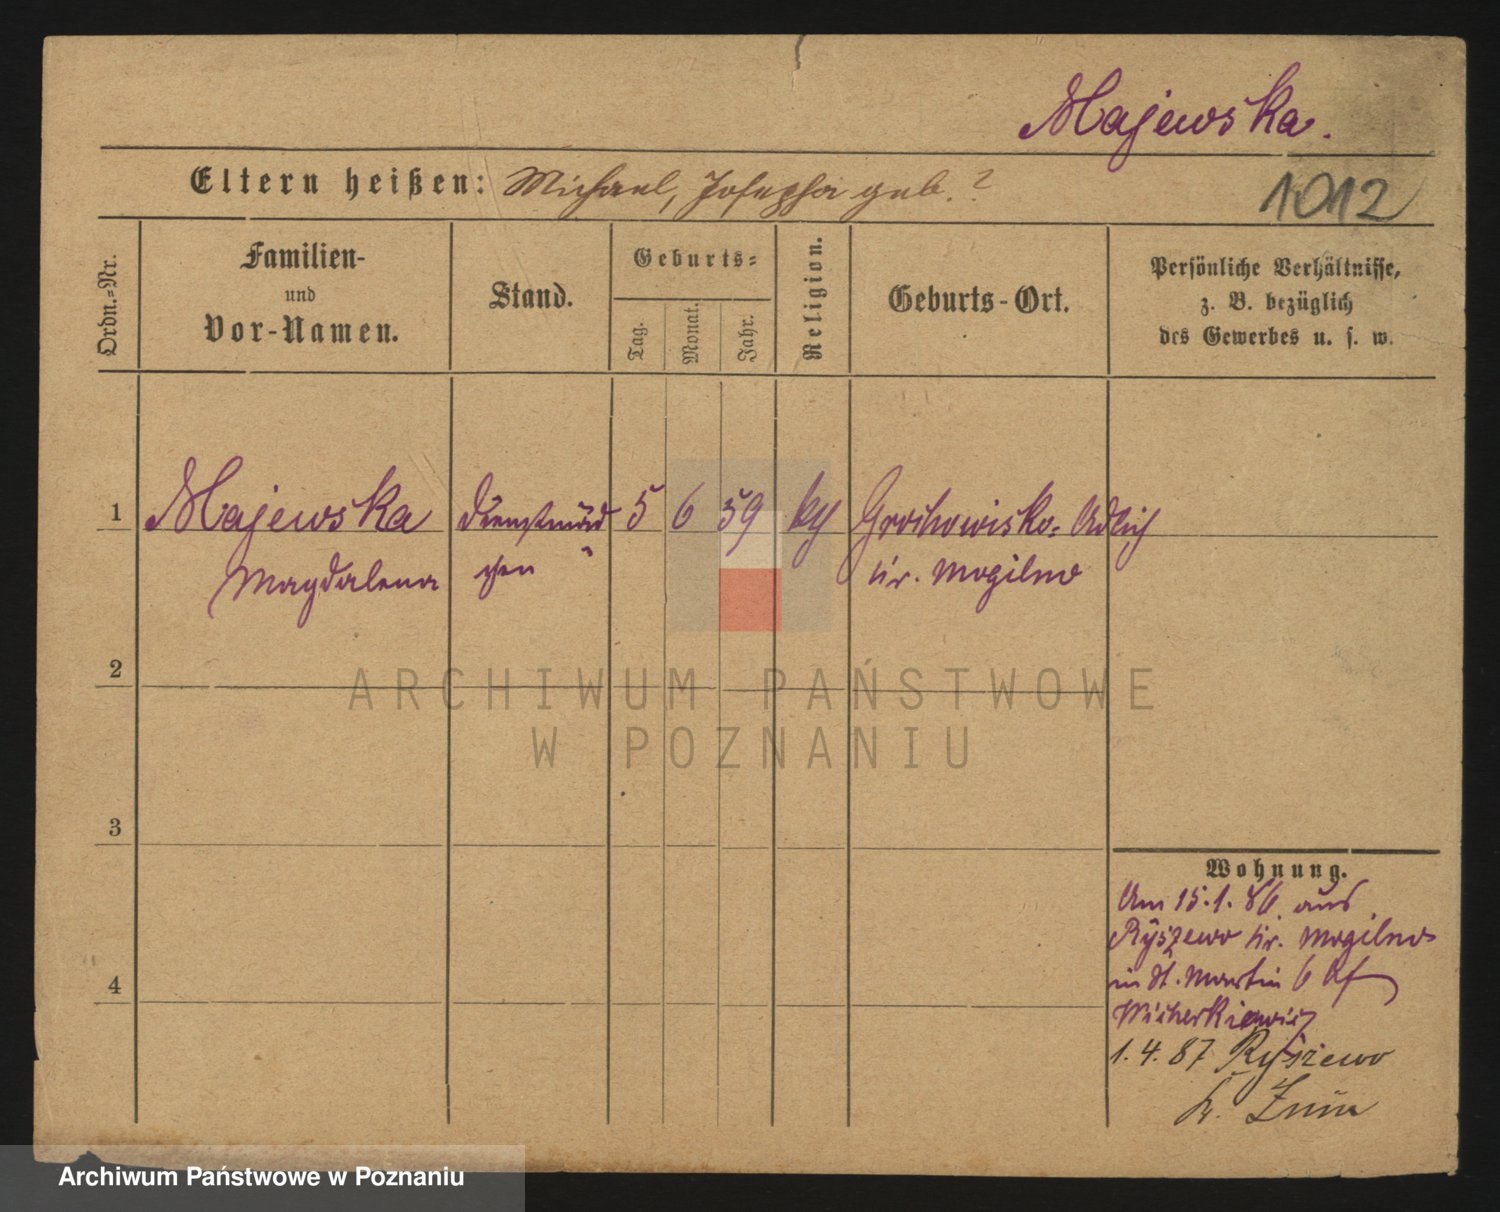 Majewska.
Eltern heißen: Michael, Josepha geb. ?
1012
Ordn.=Nr.
Familien-
und
Vor-Namen.
Stand.
Geburts=
Tag.
Monat.
Jahr.
Religion.
Geburts-Ort.
Persönliche Verhältnisse,
z. B. bezüglich
des Gewerbes u. s. w.
1 Majewska Dienstmäd 5 6 59 kg Grochowisko= Adlich
Magdalena chen Kr. Mogilno
2
ARCHIWUM PAŃSTWOWE
W POZNANIU
3
Wohnung.
Am 15.1.86 aus
Ryszewo Kr. Mogilno
in St. Martin 6 bf
4
Wicherkiewicz
1.4.87 Ryszewo
Kr. Znin
Archiwum Państwowe w Poznaniu